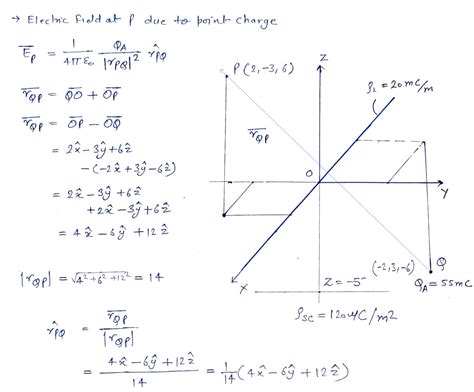 → Electric field at P due to point charge
E̅_P = 1/(4πε₀) Q_A/|r_PQ|² r̂_PQ
r̅_QP = Q̅O̅ + O̅P̅
r̅_QP = O̅P̅ − O̅Q̅
= 2x̂ − 3ŷ + 6ẑ
− (−2x̂ + 3ŷ − 6ẑ)
= 2x̂ − 3ŷ + 6ẑ
+ 2x̂ − 3ŷ + 6ẑ
= 4x̂ − 6ŷ + 12ẑ
|r_QP| = √(4² + 6² + 12²) = 14
r̂_PQ = r̅_QP/|r_QP|
= (4x̂ − 6ŷ + 12ẑ)/14 = 1/14 (4x̂ − 6ŷ + 12ẑ)
P(2,−3,6)
Z
ρ_L = 20mC/m
r̅_QP
O
Y
X
(−2,3,−6)
Q
Q_A = 55mC
Z = −5
ρ_SC = 120μC/m2